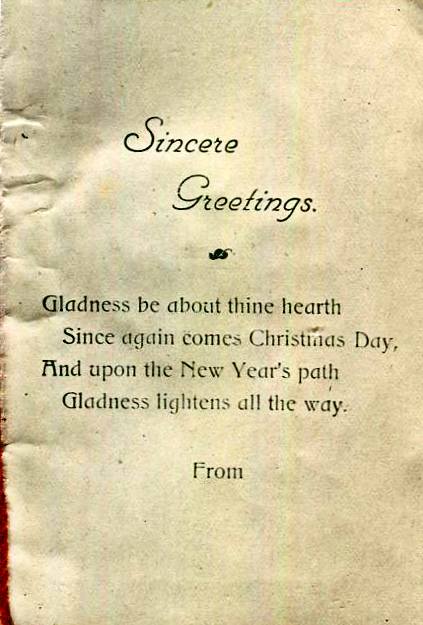 Sincere
Greetings.
Gladness be about thine hearth
Since again comes Christmas Day,
And upon the New Year's path
Gladness lightens all the way.
From